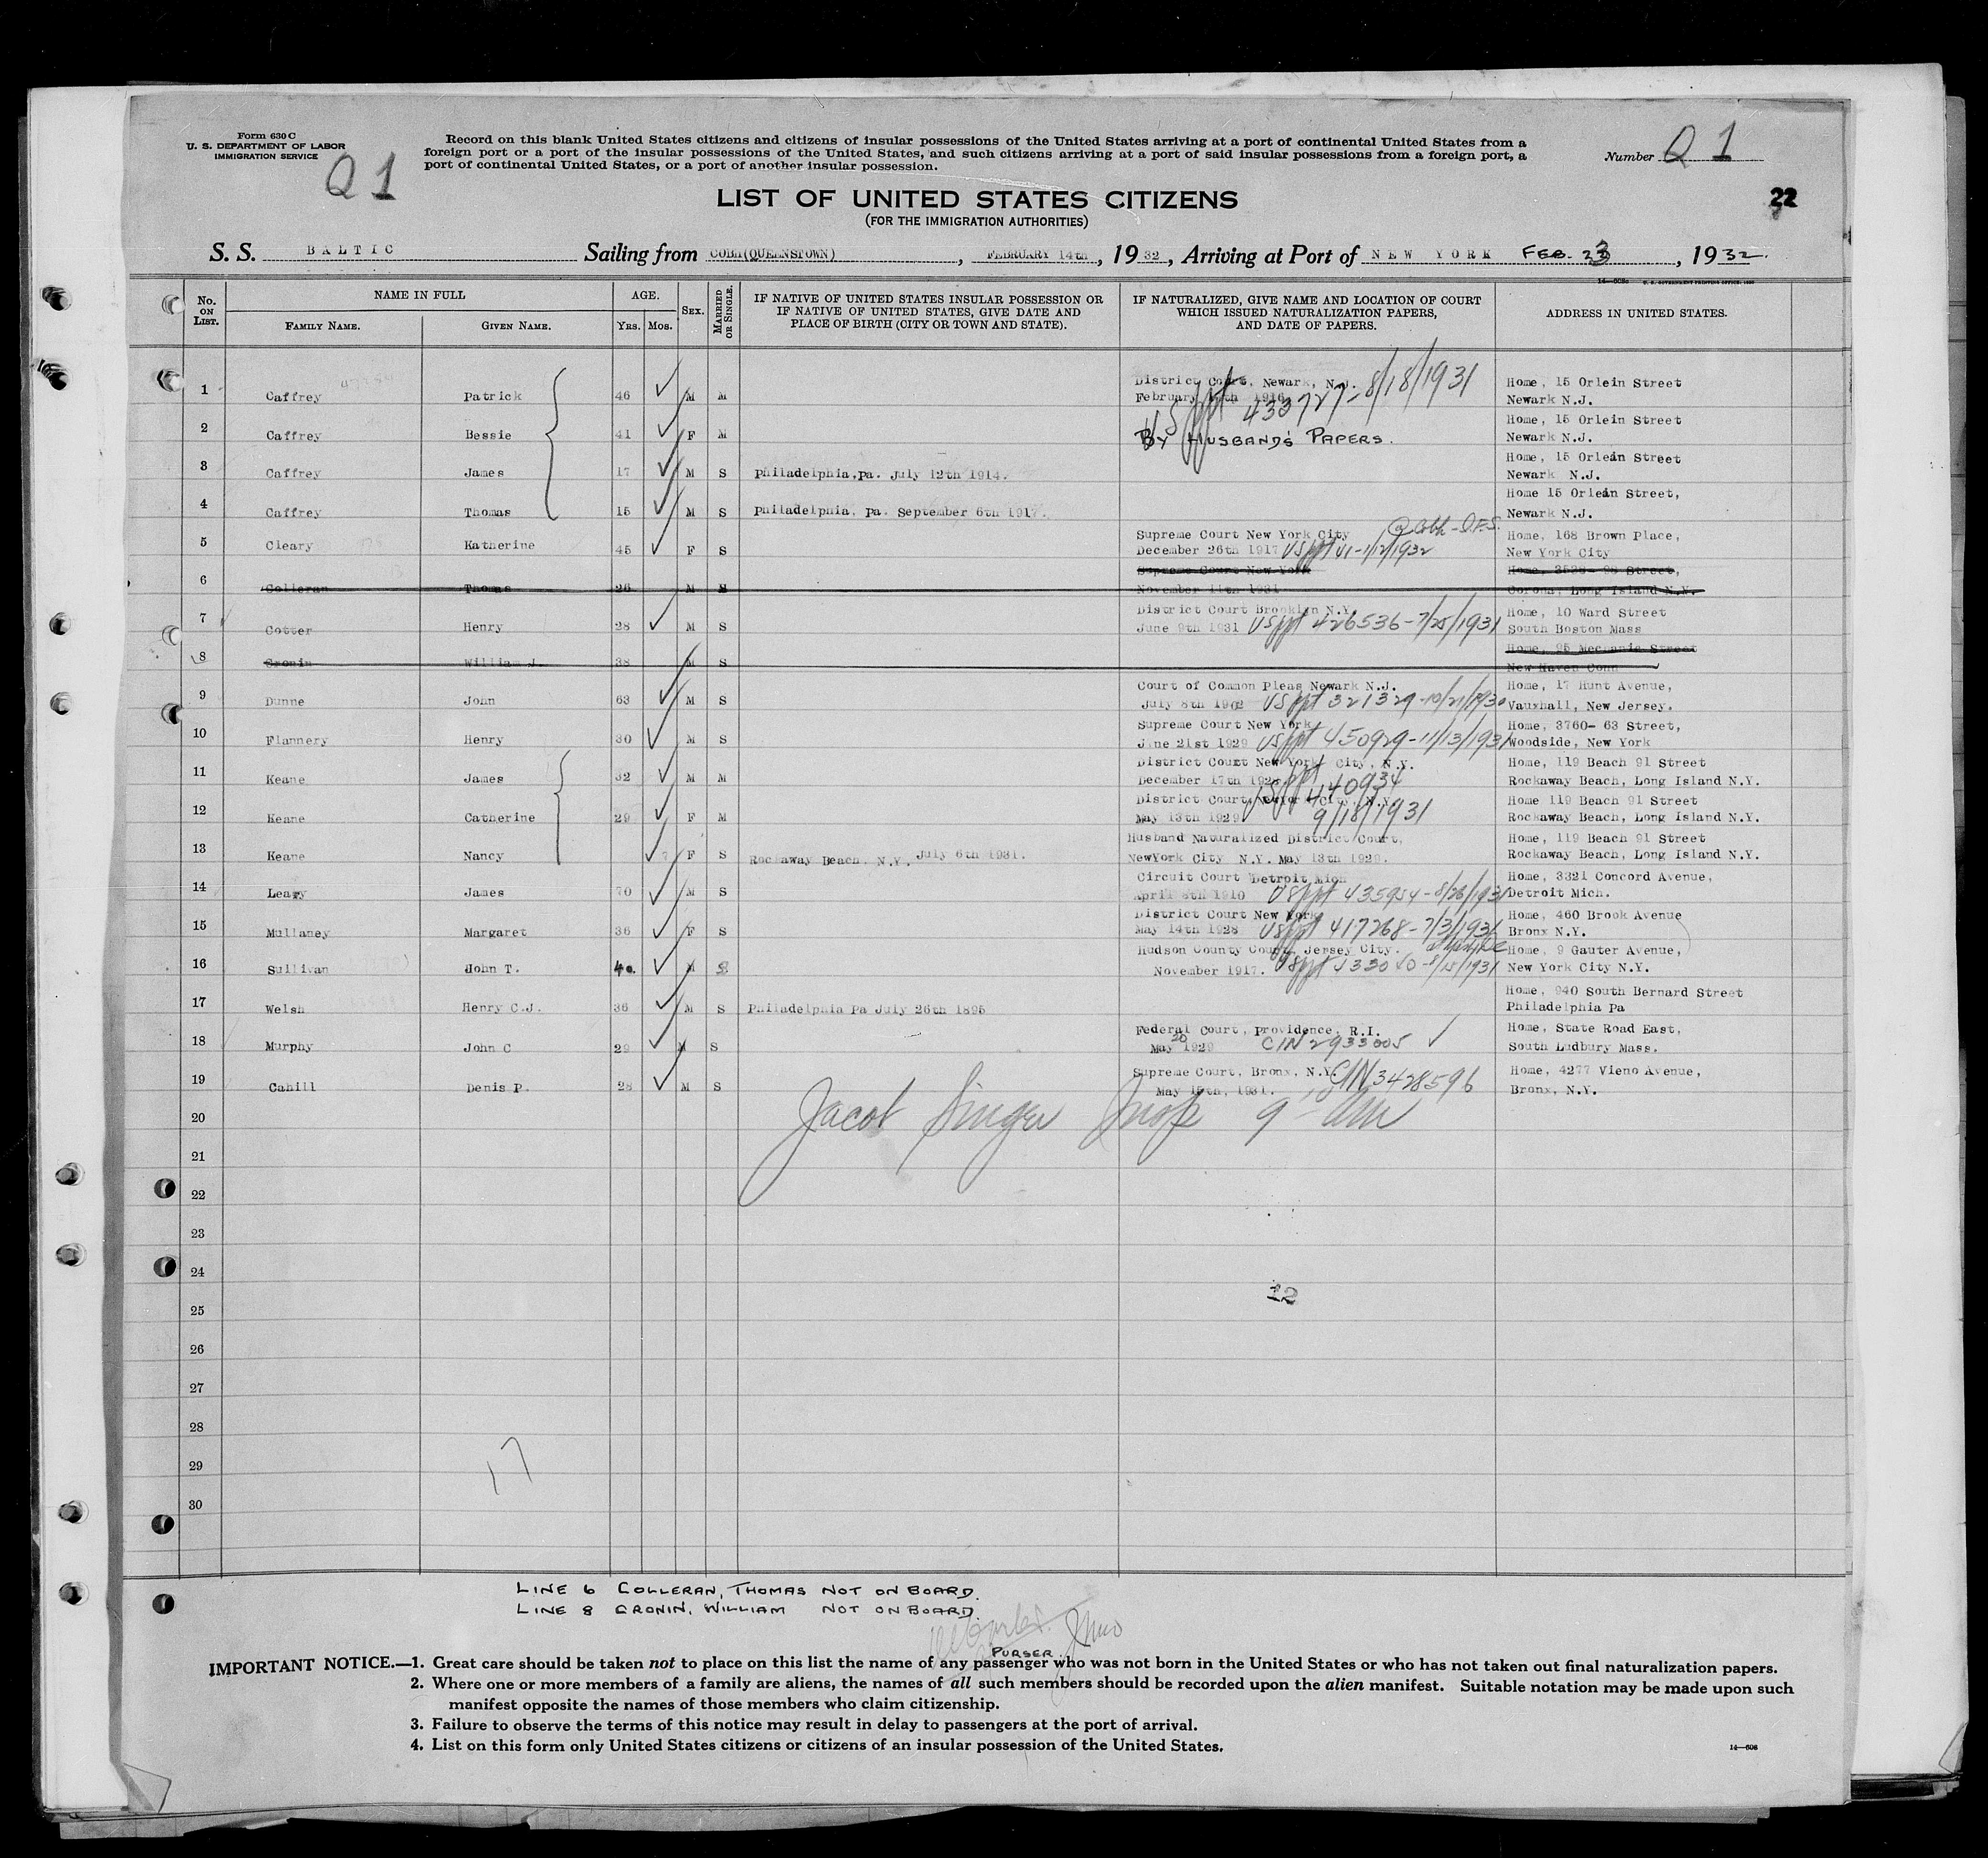 Form 630 C
U. S. DEPARTMENT OF LABOR
IMMIGRATION SERVICE
Q 1
Record on this blank United States citizens and citizens of insular possessions of the United States arriving at a port of continental United States from a
foreign port or a port of the insular possessions of the United States, and such citizens arriving at a port of said insular possessions from a foreign port, a
port of continental United States, or a port of another insular possession.
Number Q 1
LIST OF UNITED STATES CITIZENS
(FOR THE IMMIGRATION AUTHORITIES)
22
S. S. BALTIC Sailing from COBH(QUEENSTOWN), FEBRUARY 14th, 1932, Arriving at Port of NEW YORK FEB. 23, 1932.
No. ON LIST. NAME IN FULL FAMILY NAME. GIVEN NAME. AGE. YRS. MOS. SEX. MARRIED OR SINGLE. IF NATIVE OF UNITED STATES INSULAR POSSESSION OR IF NATIVE OF UNITED STATES, GIVE DATE AND PLACE OF BIRTH (CITY OR TOWN AND STATE). IF NATURALIZED, GIVE NAME AND LOCATION OF COURT WHICH ISSUED NATURALIZATION PAPERS, AND DATE OF PAPERS. ADDRESS IN UNITED STATES.
1 Caffrey Patrick 46 M M District Court, Newark, N.J. February 1916 US ppt 433727-8/18/1931 Home, 15 Orlein Street Newark N.J.
2 Caffrey Bessie 41 F M BY HUSBAND'S PAPERS. Home, 15 Orlein Street Newark N.J.
3 Caffrey James 17 M S Philadelphia,Pa. July 12th 1914. Home, 15 Orlein Street Newark N.J.
4 Caffrey Thomas 15 M S Philadelphia, Pa. September 6th 1917. Home 15 Orlein Street, Newark N.J.
5 Cleary Katherine 45 F S Supreme Court New York City December 26th 1917 US ppt 1/12/1932 Home, 168 Brown Place, New York City
6 Colleran Thomas 26 M M Supreme Court New York November 11th 1931 Home, 3538- 98 Street, Corona, Long Island N.Y.
7 Cotter Henry 28 M S District Court Brooklyn N.Y. June 9th 1931 US ppt 426536-7/25/1931 Home, 10 Ward Street South Boston Mass
8 Cronin William J. 38 M S Home, 95 Mechanic Street New Haven Conn
9 Dunne John 63 M S Court of Common Pleas Newark N.J. July 8th 1902 US ppt 321329-10/21/1930 Home, 17 Hunt Avenue, Vauxhall, New Jersey.
10 Flannery Henry 30 M S Supreme Court New York June 21st 1929 US ppt 450929-11/13/1931 Home, 3760- 63 Street, Woodside, New York
11 Keane James 32 M M District Court New York City, N.Y. December 17th 1928 US ppt 440934 Home, 119 Beach 91 Street Rockaway Beach, Long Island N.Y.
12 Keane Catherine 29 F M District Court, New York City, N.Y. May 13th 1929 9/18/1931 Home 119 Beach 91 Street Rockaway Beach, Long Island N.Y.
13 Keane Nancy 7 F S Rockaway Beach, N.Y. July 6th 1931. Husband Naturalized District Court, NewYork City N.Y. May 13th 1929. Home, 119 Beach 91 Street Rockaway Beach, Long Island N.Y.
14 Leary James 70 M S Circuit Court Detroit Mich April 8th 1910 US ppt 435954-8/28/1931 Home, 3321 Concord Avenue, Detroit Mich.
15 Mullaney Margaret 36 F S District Court New York May 14th 1928 US ppt 417268-7/3/1931 Home, 460 Brook Avenue Bronx N.Y.
16 Sullivan John T. 40. M S Hudson County Court, Jersey City. November 1917. US ppt 8/15/1931 Home, 9 Gauter Avenue, New York City N.Y.
17 Welsh Henry C.J. 36 M S Philadelphia Pa July 26th 1895 Home, 940 South Bernard Street Philadelphia Pa
18 Murphy John C 29 M S Federal Court, Providence, R.I. May 20 1929 CIN 2933005 Home, State Road East, South Ludbury Mass.
19 Cahill Denis P. 28 M S Supreme Court, Bronx, N.Y. May 15th, 1931. CIN 3428596 Home, 4277 Vieno Avenue, Bronx, N.Y.
20 Jacob Singer Insp 9 AM
21
22
23
24
12
25
26
27
28
29
17
30
LINE 6 COLLERAN, THOMAS NOT ON BOARD.
LINE 8 CRONIN, WILLIAM NOT ON BOARD.
PURSER
IMPORTANT NOTICE.—1. Great care should be taken not to place on this list the name of any passenger who was not born in the United States or who has not taken out final naturalization papers.
2. Where one or more members of a family are aliens, the names of all such members should be recorded upon the alien manifest. Suitable notation may be made upon such
manifest opposite the names of those members who claim citizenship.
3. Failure to observe the terms of this notice may result in delay to passengers at the port of arrival.
4. List on this form only United States citizens or citizens of an insular possession of the United States.
14—608